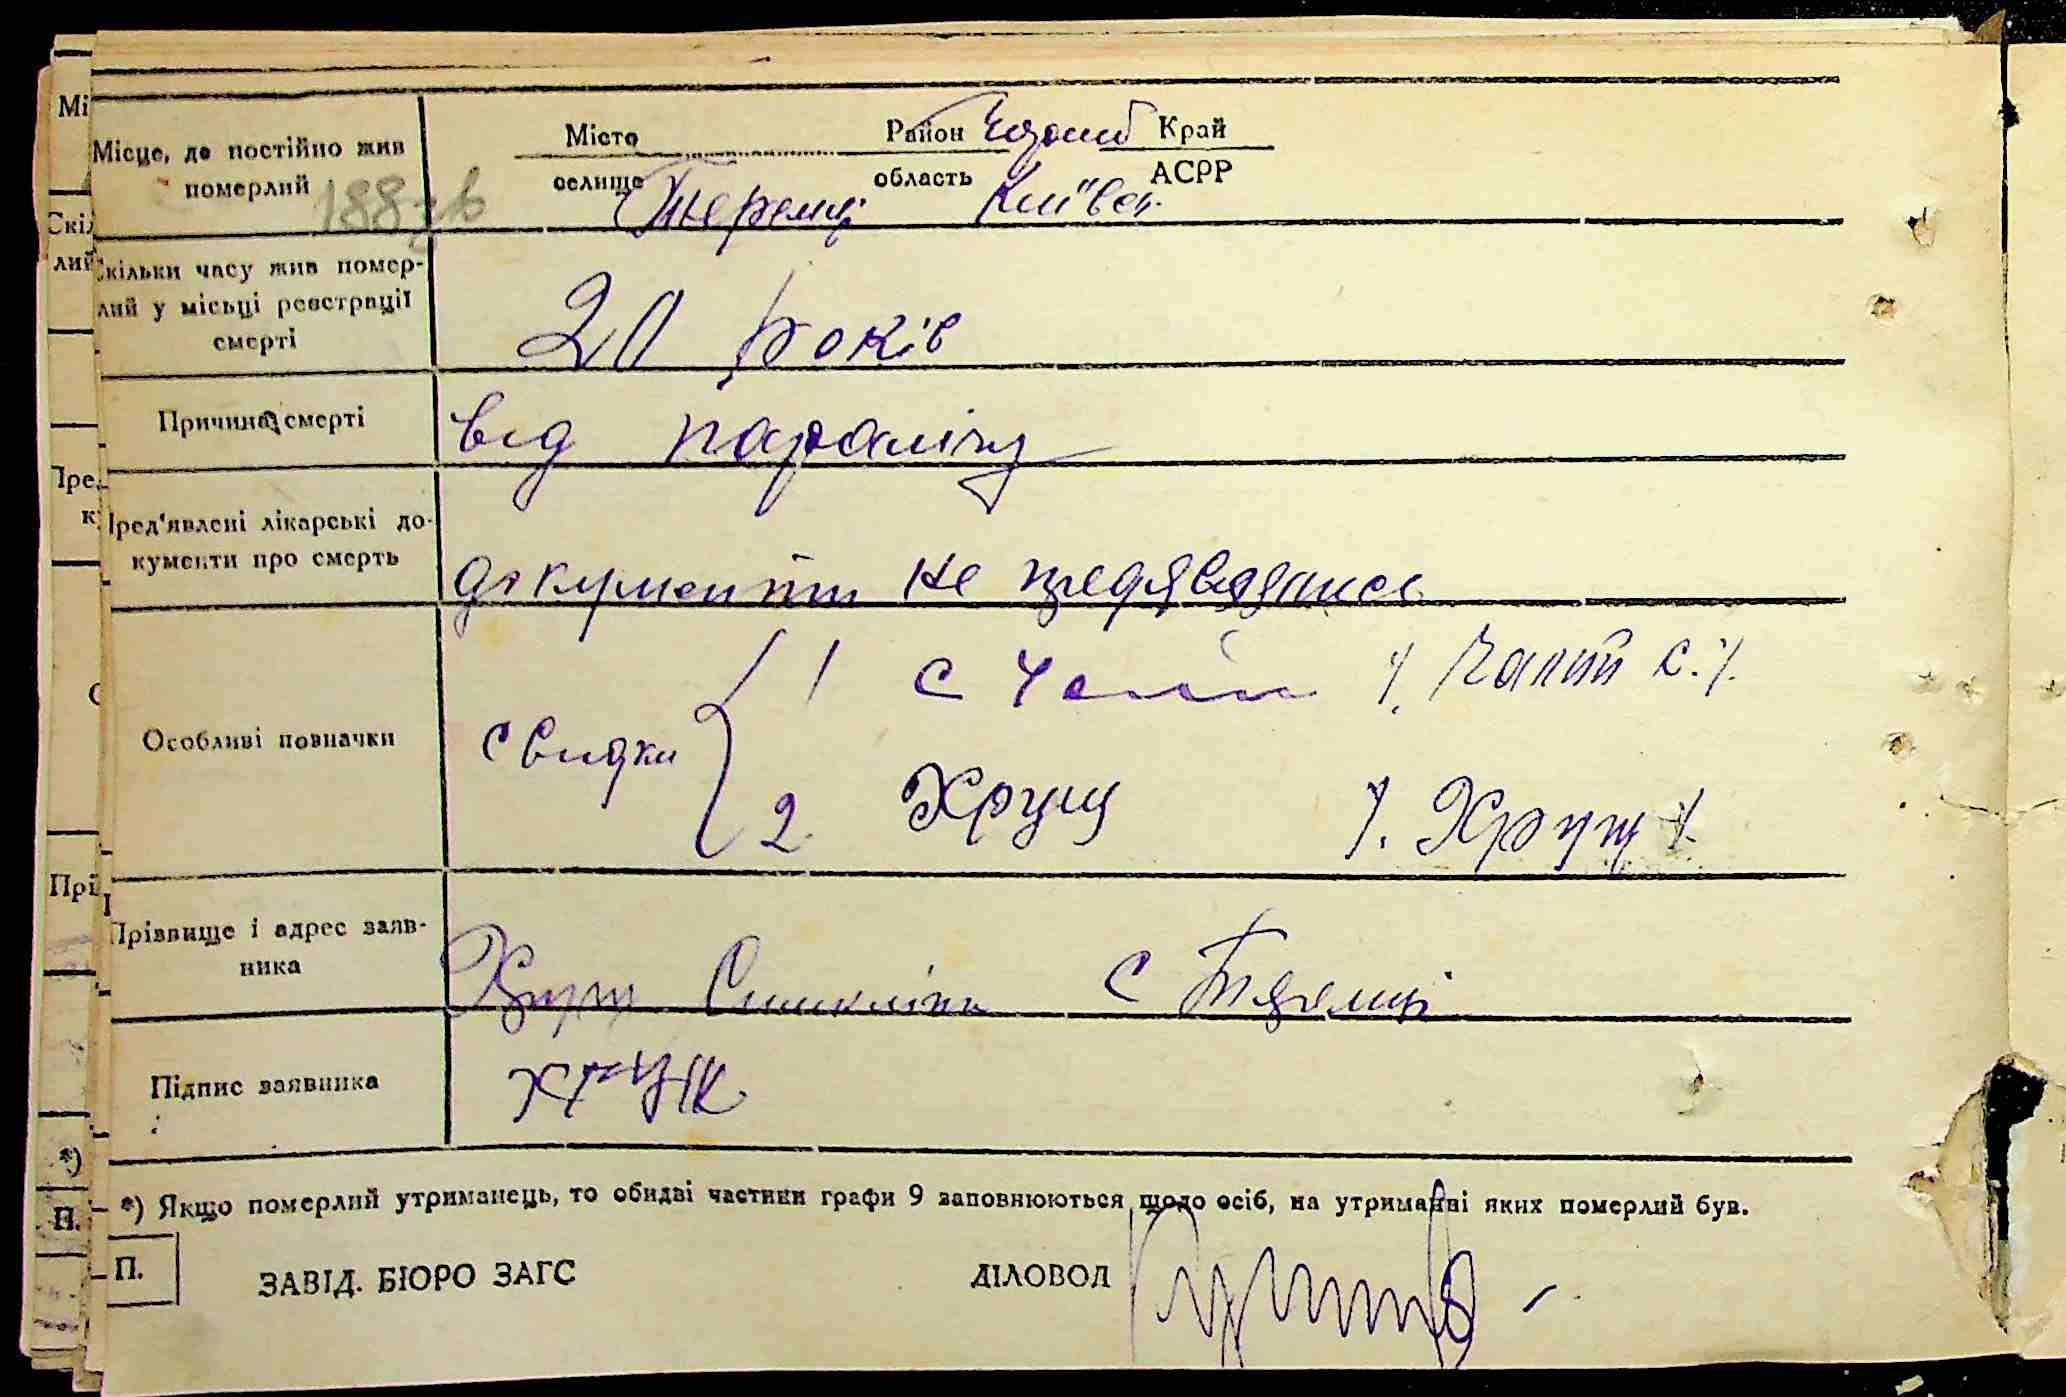 Місце, де постійно жив
померлий
188 зв
Місто Район Край
селище область АСРР
Теремці Київськ.
Скільки часу жив помер-
лий у місьці реєстрації
смерті
20 років
Причина смерті
від паралічу
Пред'явлені лікарські до-
кументи про смерть
документи не предявлялись
Особливі повначки
Свидки
1 С /. Чапий С./.
2 Хрущ /. Хрущ /.
Прізвище і адрес заяв-
ника
Хрущ с Теремці
Підпис заявника
*) Якщо померлий утриманець, то обидві частини графи 9 заповнюються щодо осіб, на утриманні яких померлий був.
П.
ЗАВІД. БЮРО ЗАГС ДІЛОВОД